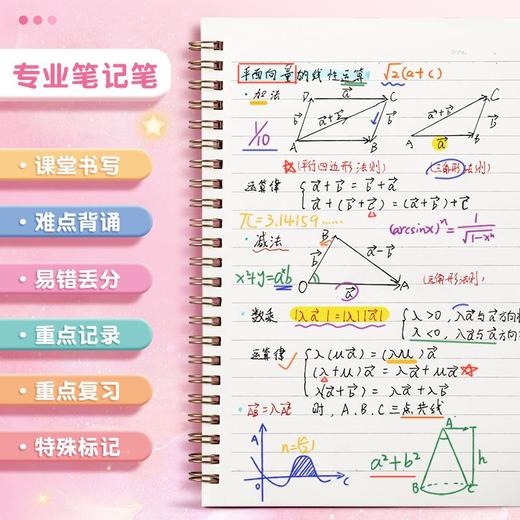 专业笔记笔
课堂书写
难点背诵
易错丢分
重点记录
重点复习
特殊标记
平面向量的线性运算 √2(a+c)
·加法
D a⃗ C
a⃗+b⃗ b⃗
A B
C
a⃗+b⃗ b⃗
A a⃗ B
1/10
☆(平行四边形法则) (三角形法则)
运算律 { a⃗+b⃗=b⃗+a⃗
a⃗+(b⃗+c⃗)=(a⃗+b⃗)+c⃗
π=3.14159…… (arcsinx)ⁿ=1/√1-xⁿ
·减法
B
b⃗ a⃗-b⃗
O a⃗ A
x²+y=a²b (三角形法则)
·数乘 |λa⃗|=|λ||a⃗| { λ>0, λa⃗与a⃗方向
λ<0, λa⃗与a⃗方向
运算律 { λ(μa⃗)=(λμ)a⃗
(λ+μ)a⃗=λa⃗+μa⃗ ☆
λ(a⃗+b⃗)=λa⃗+λb⃗
·AB⃗=λAC⃗ 时, A.B.C三点共线
A
C
O
a²+b²
A
h
B C